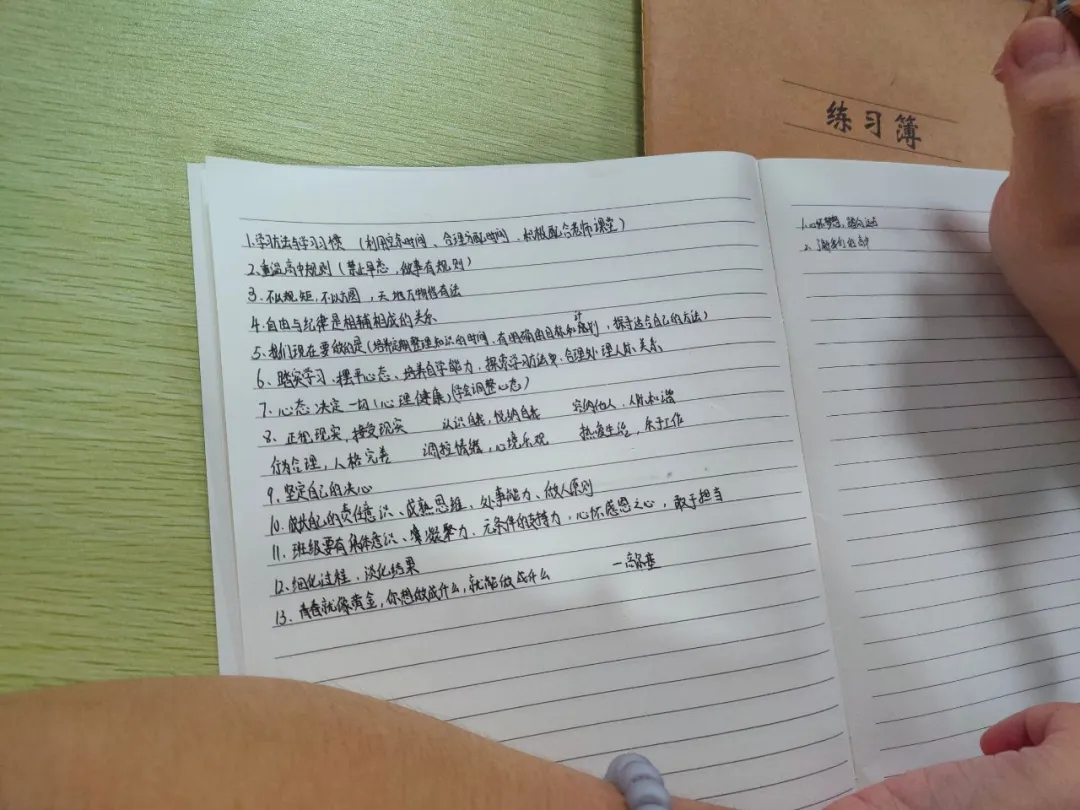 练习簿
1.学习方法与学习习惯 (利用空余时间、合理分配时间、积极配合老师课堂)
2.重温高中规则(禁止早恋,做事有规则)
3.不以规矩,不以方圆,天地万物皆有法
4.自由与纪律是相辅相成的关系
5、我们现在要做的是(培养定期整理知识的时间、有明确的目标和计划,探寻适合自己的方法)
6、踏实学习、摆平心态、培养自学能力、探索学习方法中、合理处理人际关系
7、心态决定一切(心理健康)(学会调整心态)
8、正视现实,接受现实 认识自我,悦纳自我 容纳他人,人际和谐
行为合理,人格完善 调控情绪,心境乐观 热爱生活,乐于工作
9、坚定自己的决心
10、做好自己的责任意识、成熟思维、处事能力、做人原则
11、班级要有集体意识、凝聚力、无条件的支持力,心怀感恩之心,敢于担当
12、细化过程、淡化结果
13、青春就像黄金,你想做成什么,就能做成什么 —高尔基
1.心怀梦想,
2、了解